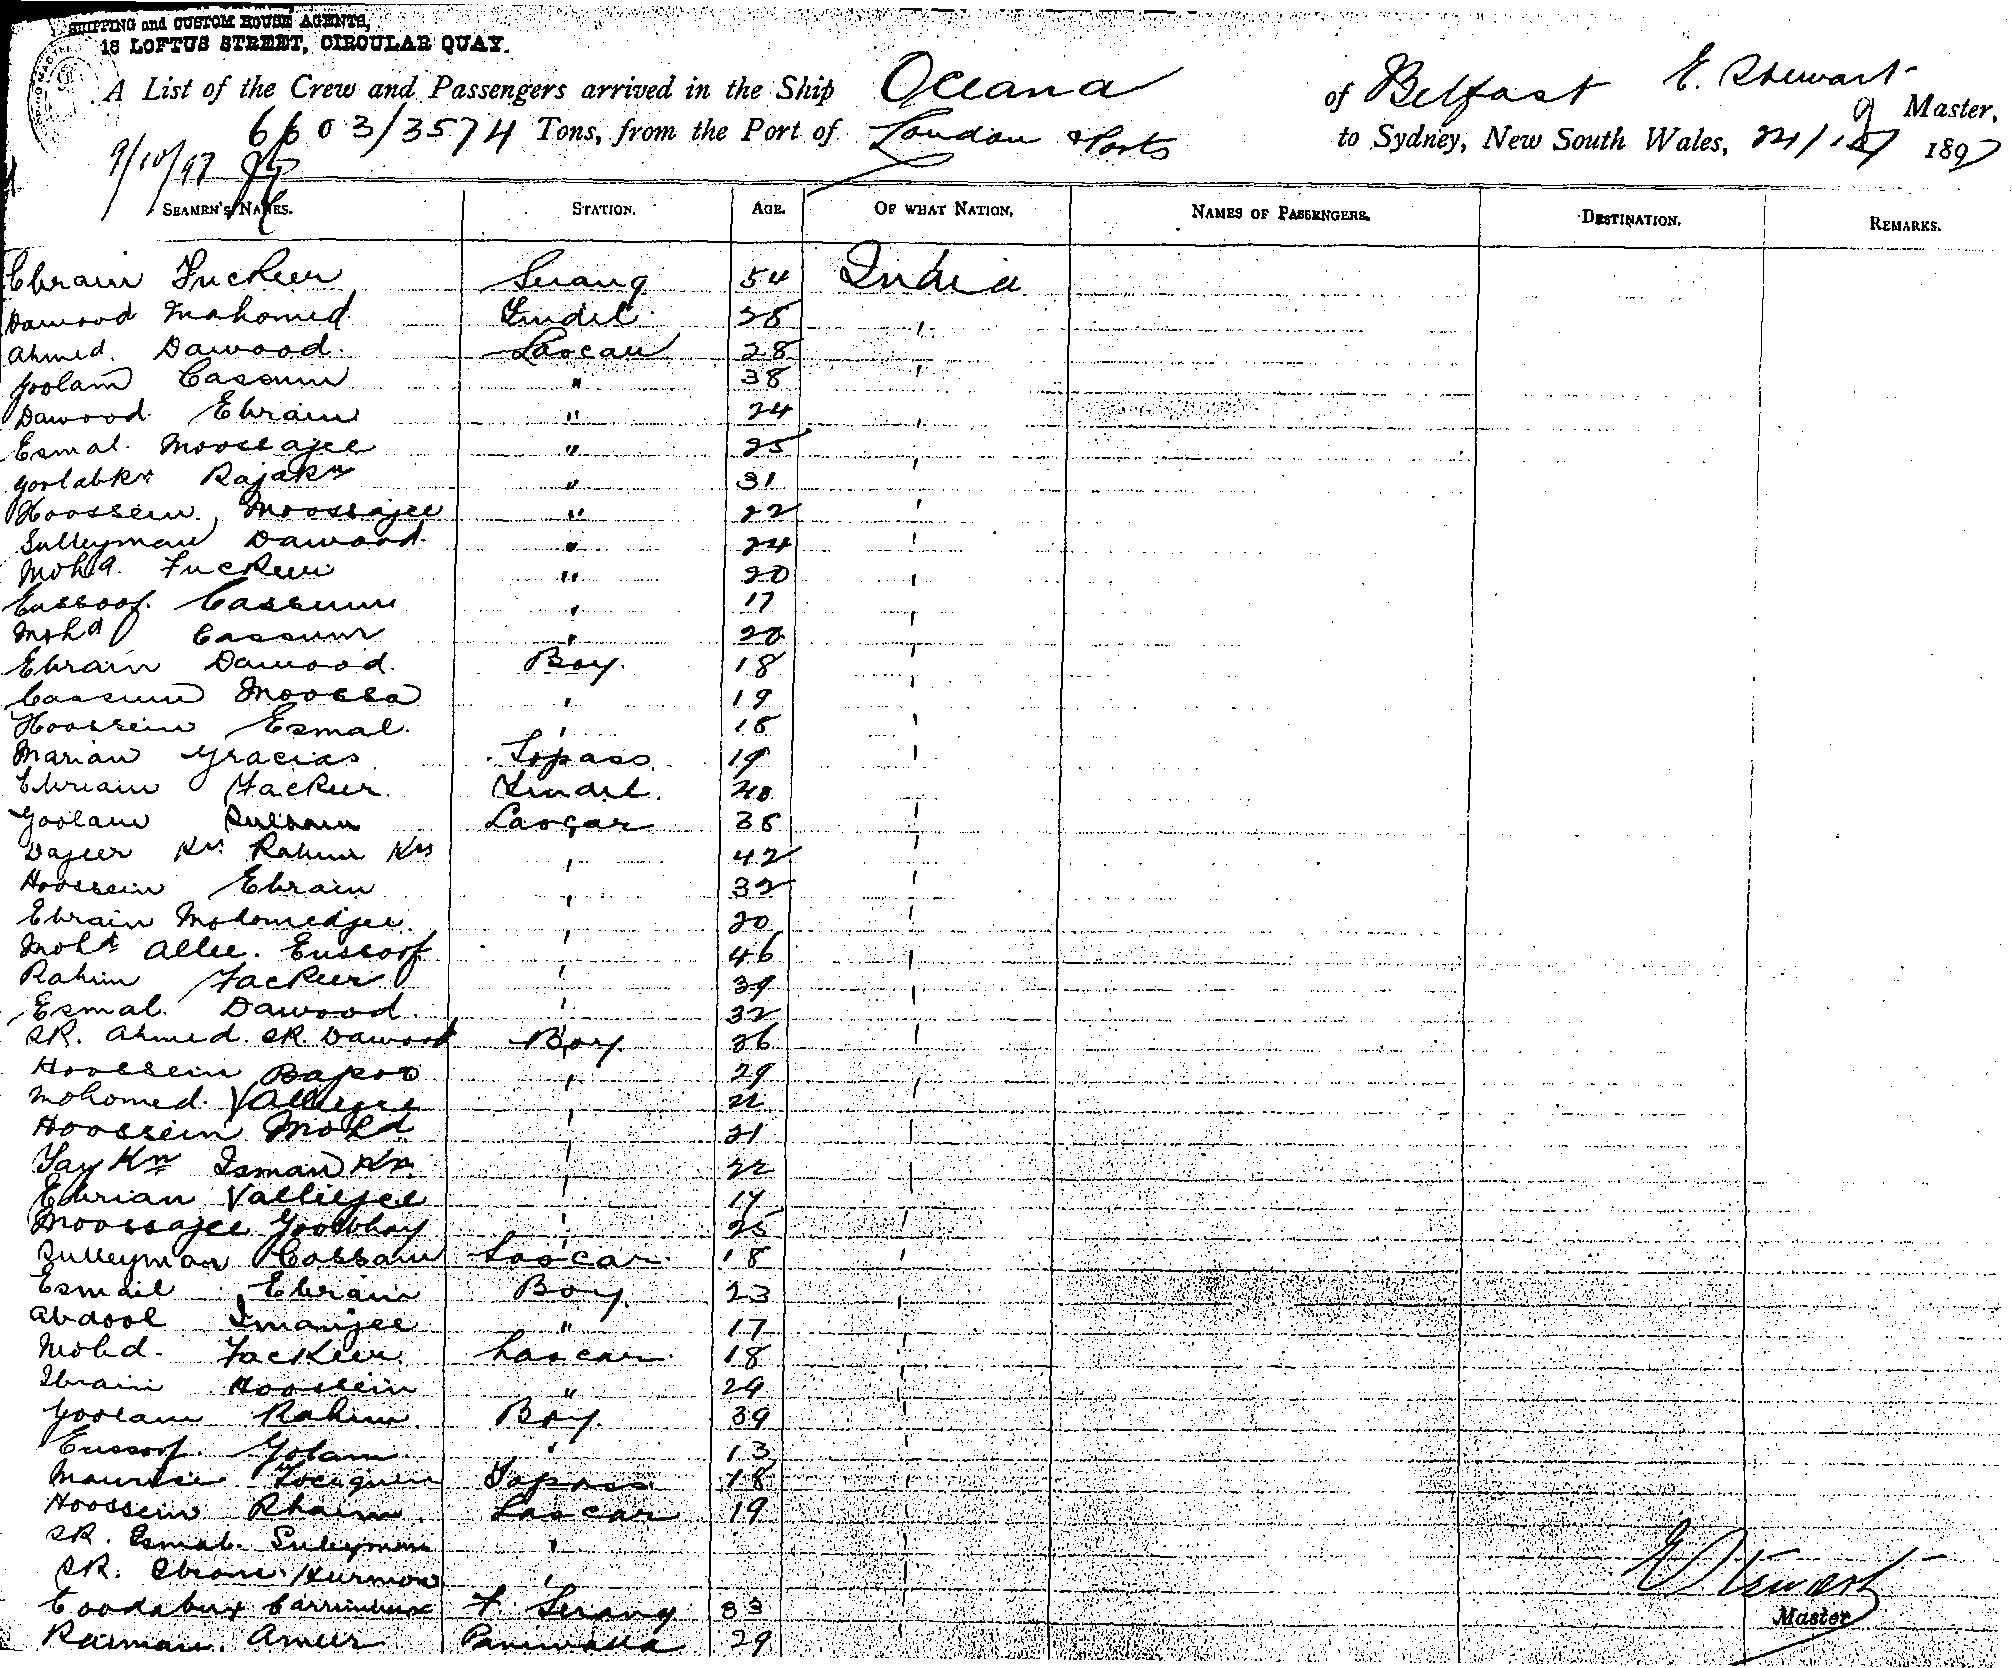 SHIPPING and CUSTOM HOUSE AGENTS,
18 LOFTUS STREET, CIRCULAR QUAY.
A List of the Crew and Passengers arrived in the Ship Oceana of Belfast E. Stewart Master,
6603/3574 Tons, from the Port of London & Ports to Sydney, New South Wales, 24/ 9 1897
9/10/97
SEAMEN'S NAMES. STATION. AGE. OF WHAT NATION. NAMES OF PASSENGERS. DESTINATION. REMARKS.
Ebraim Fuckeer Serang 54 India
Dawood Mahomed Tindel 25 "
Ahmed Dawood Lascar 28 "
Goolam Cassum " 38 "
Dawood Ebraim " 24 "
Esmal Moosajee " 25 "
Rajakn " 31 "
Hoossein Moossajee " 22 "
Sulleyman Dawood " 24 "
Mohd. Fuckeer " 20 "
Eussoof Cassum " 17 "
Mohd Cassum " 20 "
Ebraim Dawood Boy 18 "
Cassum Moossa " 19 "
Hoossein Esmal " 18 "
Marian Gracias Topass 19 "
Ebraim Fackeer Tindel 40 "
Goolam Lascar 38 "
Kn Rahim Kn " 42 "
Hoossein Ebraim " 32 "
Ebrain Mohomedjee " 20 "
Mohd Allee Eussoof " 46 "
Rahim Fackeer " 39 "
Esmal Dawood " 32 "
SR. Ahmed SR Dawood Boy 26 "
Hoossein Bapoo " 29 "
Mohomed Valliejee " 22 "
Hoossein Mohd " 21 "
Kn Isman Kn " 22 "
Ebrian Valliejee " 17 "
Moossajee Goolbhay " 25 "
Sulleyman Cassam Lascar 18 "
Esmail Ebraim Boy 23 "
Abdool Imanjee " 17 "
Mohd. Fackeer Lascar 18 "
Ibraim Hoossein " 29 "
Goolam Rahim Boy 39 "
Eussoof Golam " 13 "
Topass 18 "
Hoossein Rhaim Lascar 19 "
SR. Esmal Suleyman "
SR. "
F. Serang 33
Raiman Ameer Paniwalla 29
E Stewart
Master